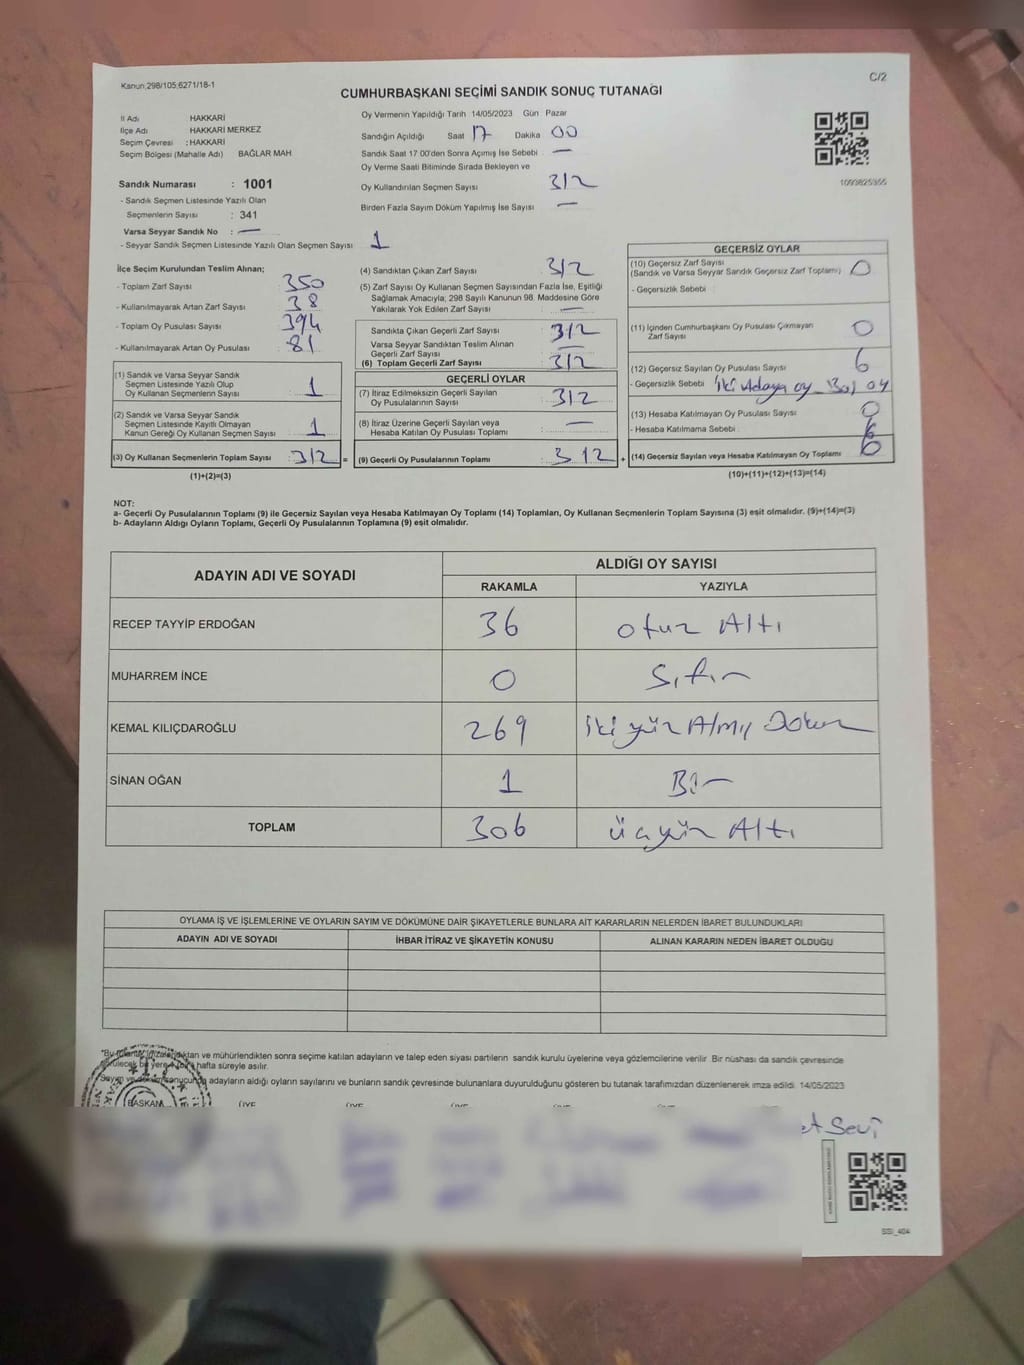 Kanun,298/105,6271/18-1
C/2
CUMHURBAŞKANI SEÇİMİ SANDIK SONUÇ TUTANAĞI
İl Adı HAKKARİ
İlçe Adı HAKKARİ MERKEZ
Seçim Çevresi : HAKKARİ
Seçim Bölgesi (Mahalle Adı) BAĞLAR MAH.
Sandık Numarası : 1001
- Sandık Seçmen Listesinde Yazılı Olan
Seçmenlerin Sayısı : 341
Varsa Seyyar Sandık No : —
- Seyyar Sandık Seçmen Listesinde Yazılı Olan Seçmen Sayısı 1
Oy Vermenin Yapıldığı Tarih 14/05/2023 Gün Pazar
Sandığın Açıldığı Saat 17 Dakika 00
Sandık Saat 17:00'den Sonra Açılmış İse Sebebi —
Oy Verme Saati Bitiminde Sırada Bekleyen ve
Oy Kullandırılan Seçmen Sayısı 312
Birden Fazla Sayım Döküm Yapılmış İse Sayısı —
1093825355
İlçe Seçim Kurulundan Teslim Alınan;
- Toplam Zarf Sayısı 350
- Kullanılmayarak Artan Zarf Sayısı 38
- Toplam Oy Pusulası Sayısı 394
- Kullanılmayarak Artan Oy Pusulası 81
(1) Sandık ve Varsa Seyyar Sandık
Seçmen Listesinde Yazılı Olup
Oy Kullanan Seçmenlerin Sayısı 1
(2) Sandık ve Varsa Seyyar Sandık
Seçmen Listesinde Kayıtlı Olmayan
Kanun Gereği Oy Kullanan Seçmen Sayısı 1
(3) Oy Kullanan Seçmenlerin Toplam Sayısı : 312 =
(1)+(2)=(3)
(4) Sandıktan Çıkan Zarf Sayısı 312
(5) Zarf Sayısı Oy Kullanan Seçmen Sayısından Fazla İse, Eşitliği
Sağlamak Amacıyla; 298 Sayılı Kanunun 98. Maddesine Göre
Yakılarak Yok Edilen Zarf Sayısı : —
Sandıkta Çıkan Geçerli Zarf Sayısı 312
Varsa Seyyar Sandıktan Teslim Alınan
Geçerli Zarf Sayısı —
(6) Toplam Geçerli Zarf Sayısı 312
GEÇERLİ OYLAR
(7) İtiraz Edilmeksizin Geçerli Sayılan
Oy Pusulalarının Sayısı 312
(8) İtiraz Üzerine Geçerli Sayılan veya
Hesaba Katılan Oy Pusulası Toplamı —
(9) Geçerli Oy Pusulalarının Toplamı : 312 +
GEÇERSİZ OYLAR
(10) Geçersiz Zarf Sayısı
(Sandık ve Varsa Seyyar Sandık Geçersiz Zarf Toplamı) 0
- Geçersizlik Sebebi :
(11) İçinden Cumhurbaşkanı Oy Pusulası Çıkmayan
Zarf Sayısı 0
(12) Geçersiz Sayılan Oy Pusulası Sayısı 6
- Geçersizlik Sebebi : İki Adaya oy Boş oy
(13) Hesaba Katılmayan Oy Pusulası Sayısı 0
- Hesaba Katılmama Sebebi :
(14) Geçersiz Sayılan veya Hesaba Katılmayan Oy Toplamı 6
(10)+(11)+(12)+(13)=(14)
NOT:
a- Geçerli Oy Pusulalarının Toplamı (9) ile Geçersiz Sayılan veya Hesaba Katılmayan Oy Toplamı (14) Toplamları, Oy Kullanan Seçmenlerin Toplam Sayısına (3) eşit olmalıdır. (9)+(14)=(3)
b- Adayların Aldığı Oyların Toplamı, Geçerli Oy Pusulalarının Toplamına (9) eşit olmalıdır.
ADAYIN ADI VE SOYADI
ALDIĞI OY SAYISI
RAKAMLA YAZIYLA
RECEP TAYYİP ERDOĞAN 36 otuz Altı
MUHARREM İNCE 0 Sıfır
KEMAL KILIÇDAROĞLU 269 iki yüz Atmış Dokuz
SİNAN OĞAN 1 Bir
TOPLAM 306 üçyüz Altı
OYLAMA İŞ VE İŞLEMLERİNE VE OYLARIN SAYIM VE DÖKÜMÜNE DAİR ŞİKAYETLERLE BUNLARA AİT KARARLARIN NELERDEN İBARET BULUNDUKLARI
ADAYIN ADI VE SOYADI İHBAR İTİRAZ VE ŞİKAYETİN KONUSU ALINAN KARARIN NEDEN İBARET OLDUĞU
ve mühürlendikten sonra seçime katılan adayların ve talep eden siyasi partilerin sandık kurulu üyelerine veya gözlemcilerine verilir. Bir nüshası da sandık çevresinde
hafta süreyle asılır.
adayların aldığı oyların sayılarını ve bunların sandık çevresinde bulunanlara duyurulduğunu gösteren bu tutanak tarafımızdan düzenlenerek imza edildi. 14/05/2023
BAŞKAN ÜYE ÜYE ÜYE
SSİ_404